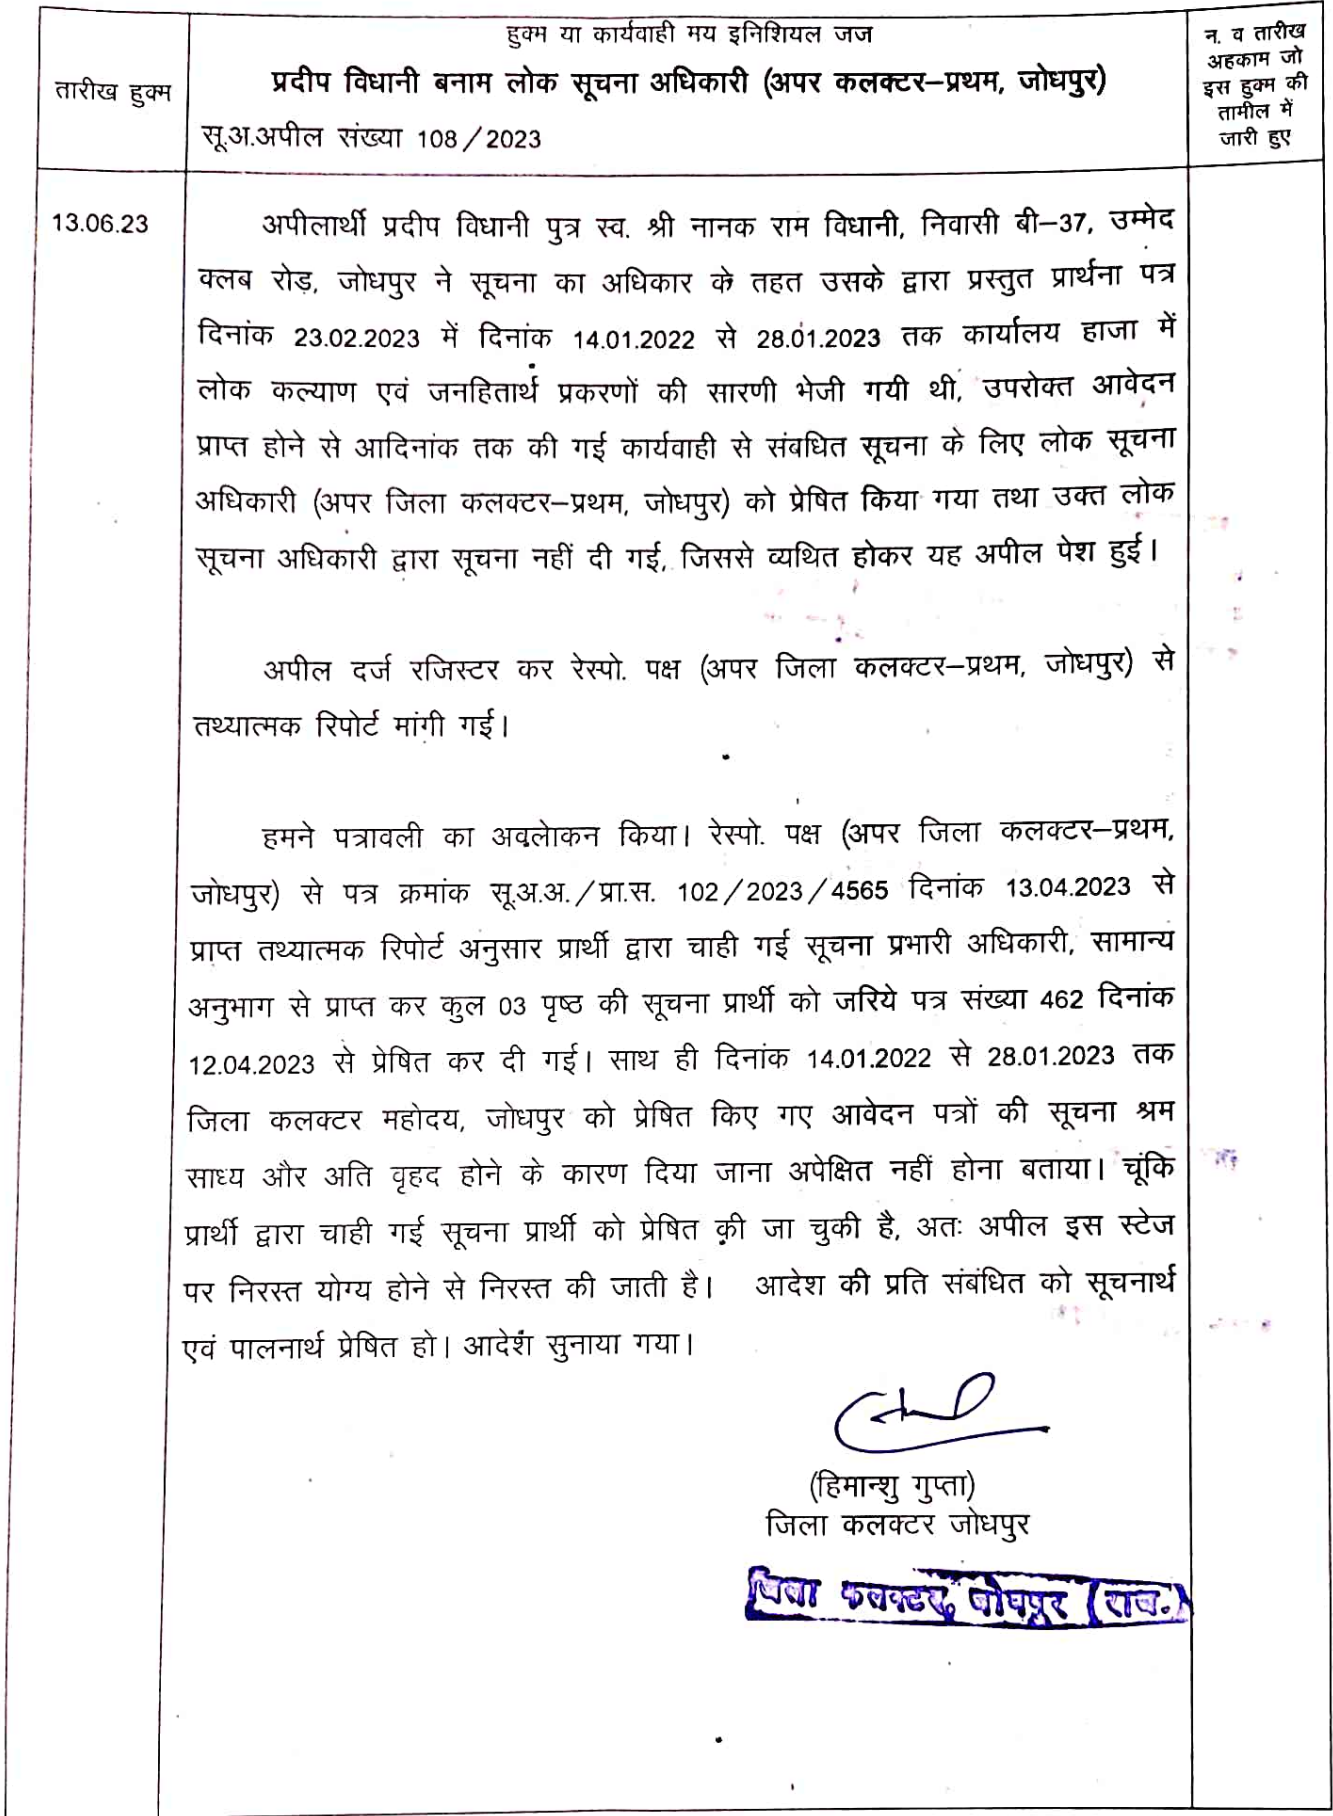 तारीख हुक्म
हुक्म या कार्यवाही मय इनिशियल जज
प्रदीप विधानी बनाम लोक सूचना अधिकारी (अपर कलक्टर–प्रथम, जोधपुर)
सू.अ.अपील संख्या 108/2023
न. व तारीख
अहकाम जो
इस हुक्म की
तामील में
जारी हुए
13.06.23
अपीलार्थी प्रदीप विधानी पुत्र स्व. श्री नानक राम विधानी, निवासी बी–37, उम्मेद
क्लब रोड़, जोधपुर ने सूचना का अधिकार के तहत उसके द्वारा प्रस्तुत प्रार्थना पत्र
दिनांक 23.02.2023 में दिनांक 14.01.2022 से 28.01.2023 तक कार्यालय हाजा में
लोक कल्याण एवं जनहितार्थ प्रकरणों की सारणी भेजी गयी थी, उपरोक्त आवेदन
प्राप्त होने से आदिनांक तक की गई कार्यवाही से संबधित सूचना के लिए लोक सूचना
अधिकारी (अपर जिला कलक्टर–प्रथम, जोधपुर) को प्रेषित किया गया तथा उक्त लोक
सूचना अधिकारी द्वारा सूचना नहीं दी गई, जिससे व्यथित होकर यह अपील पेश हुई।
अपील दर्ज रजिस्टर कर रेस्पो. पक्ष (अपर जिला कलक्टर–प्रथम, जोधपुर) से
तथ्यात्मक रिपोर्ट मांगी गई।
हमने पत्रावली का अवलेाकन किया। रेस्पो. पक्ष (अपर जिला कलक्टर–प्रथम,
जोधपुर) से पत्र क्रमांक सू.अ.अ./प्रा.स. 102/2023/4565 दिनांक 13.04.2023 से
प्राप्त तथ्यात्मक रिपोर्ट अनुसार प्रार्थी द्वारा चाही गई सूचना प्रभारी अधिकारी, सामान्य
अनुभाग से प्राप्त कर कुल 03 पृष्ठ की सूचना प्रार्थी को जरिये पत्र संख्या 462 दिनांक
12.04.2023 से प्रेषित कर दी गई। साथ ही दिनांक 14.01.2022 से 28.01.2023 तक
जिला कलक्टर महोदय, जोधपुर को प्रेषित किए गए आवेदन पत्रों की सूचना श्रम
साध्य और अति वृहद होने के कारण दिया जाना अपेक्षित नहीं होना बताया। चूंकि
प्रार्थी द्वारा चाही गई सूचना प्रार्थी को प्रेषित की जा चुकी है, अतः अपील इस स्टेज
पर निरस्त योग्य होने से निरस्त की जाती है। आदेश की प्रति संबंधित को सूचनार्थ
एवं पालनार्थ प्रेषित हो। आदेश सुनाया गया।
(हिमान्शु गुप्ता)
जिला कलक्टर जोधपुर
जिला कलक्टर, जोधपुर (राज.)